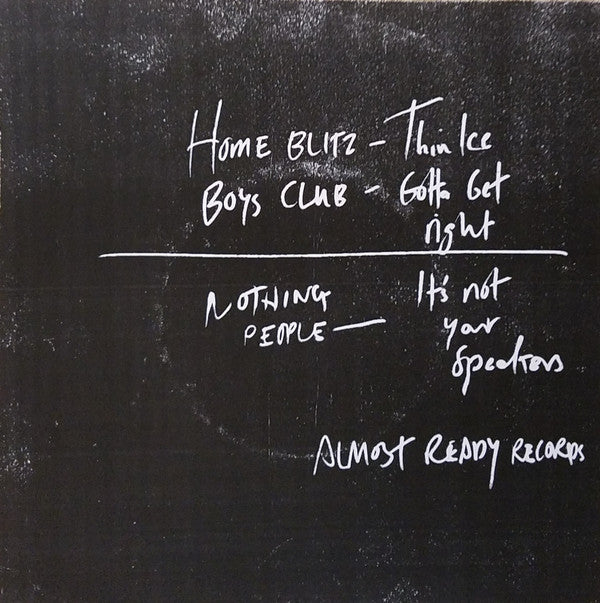 HOME BLITZ - Thin Ice
BOYS CLUB - Gotta Get
right
NOTHING It's not
PEOPLE — your
Speakers
ALMOST READY RECORDS